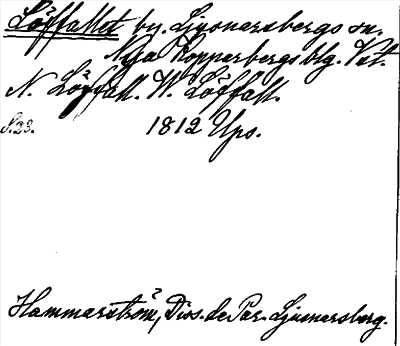 Löffallet by. Ljusnarsbergs sn.
Nya Kopperbergs blg. Vstm.
N. Löffall. W. Löffall.
S. 23. 1812 Ups.
Hammarström, Diss. de Par. Ljusnarsberg.